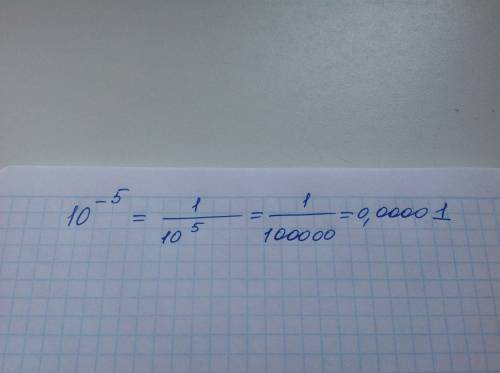 10⁻⁵ = 1/10⁵ = 1/100000 = 0,00001